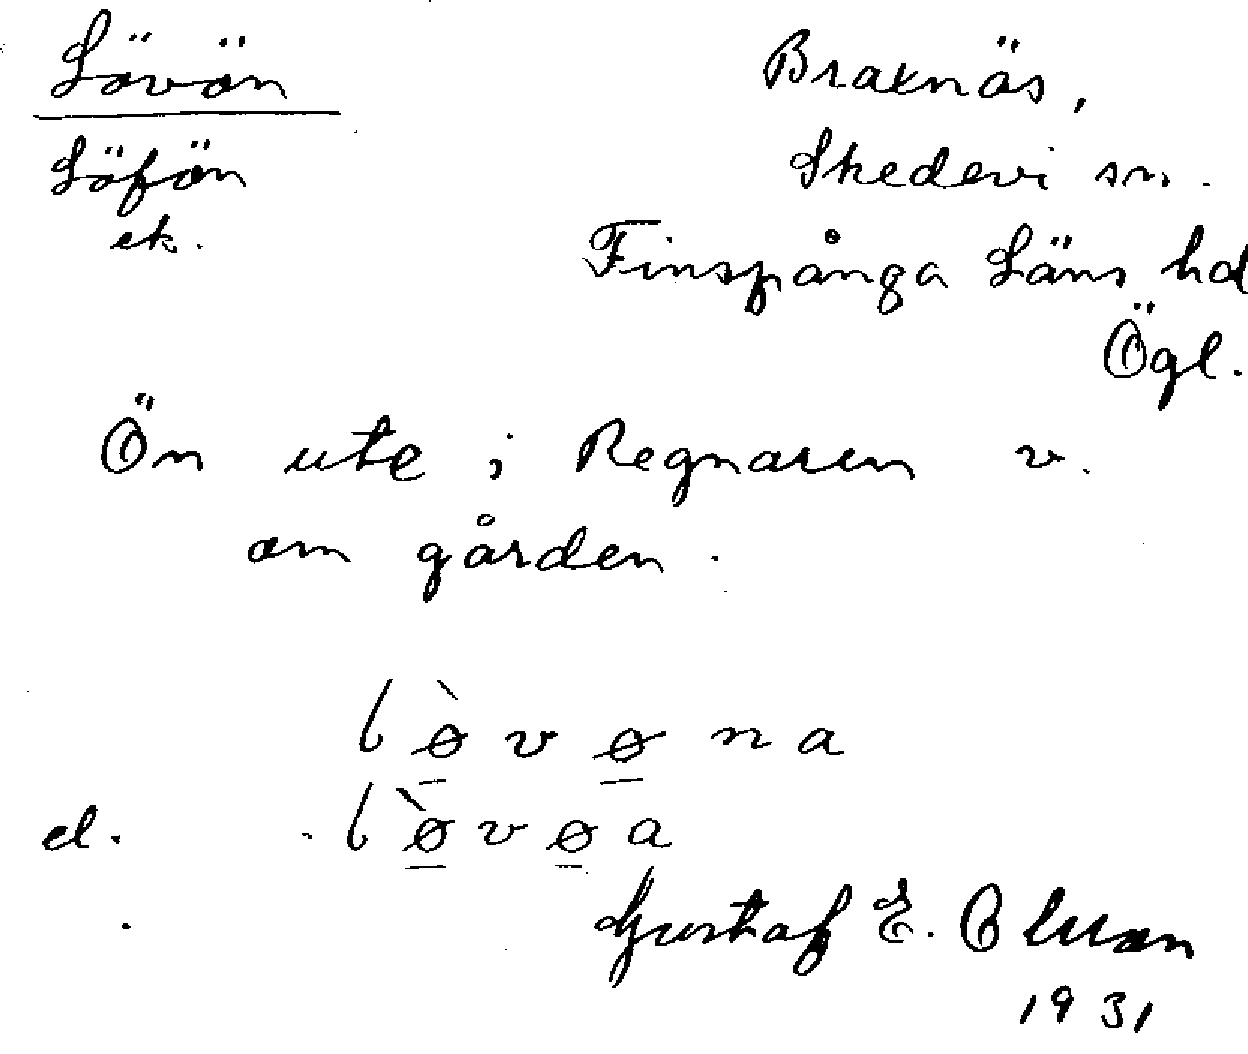 Lövön
Löfön
ek.
Braxnäs,
Skedevi sn.
Finspånga Läns hd
Ögl.
Ön ute i Regnaren v.
om gården.
lø̠̀vø̠na
el. lø̠̀vø̠a
Gustaf E. Olsson
1931